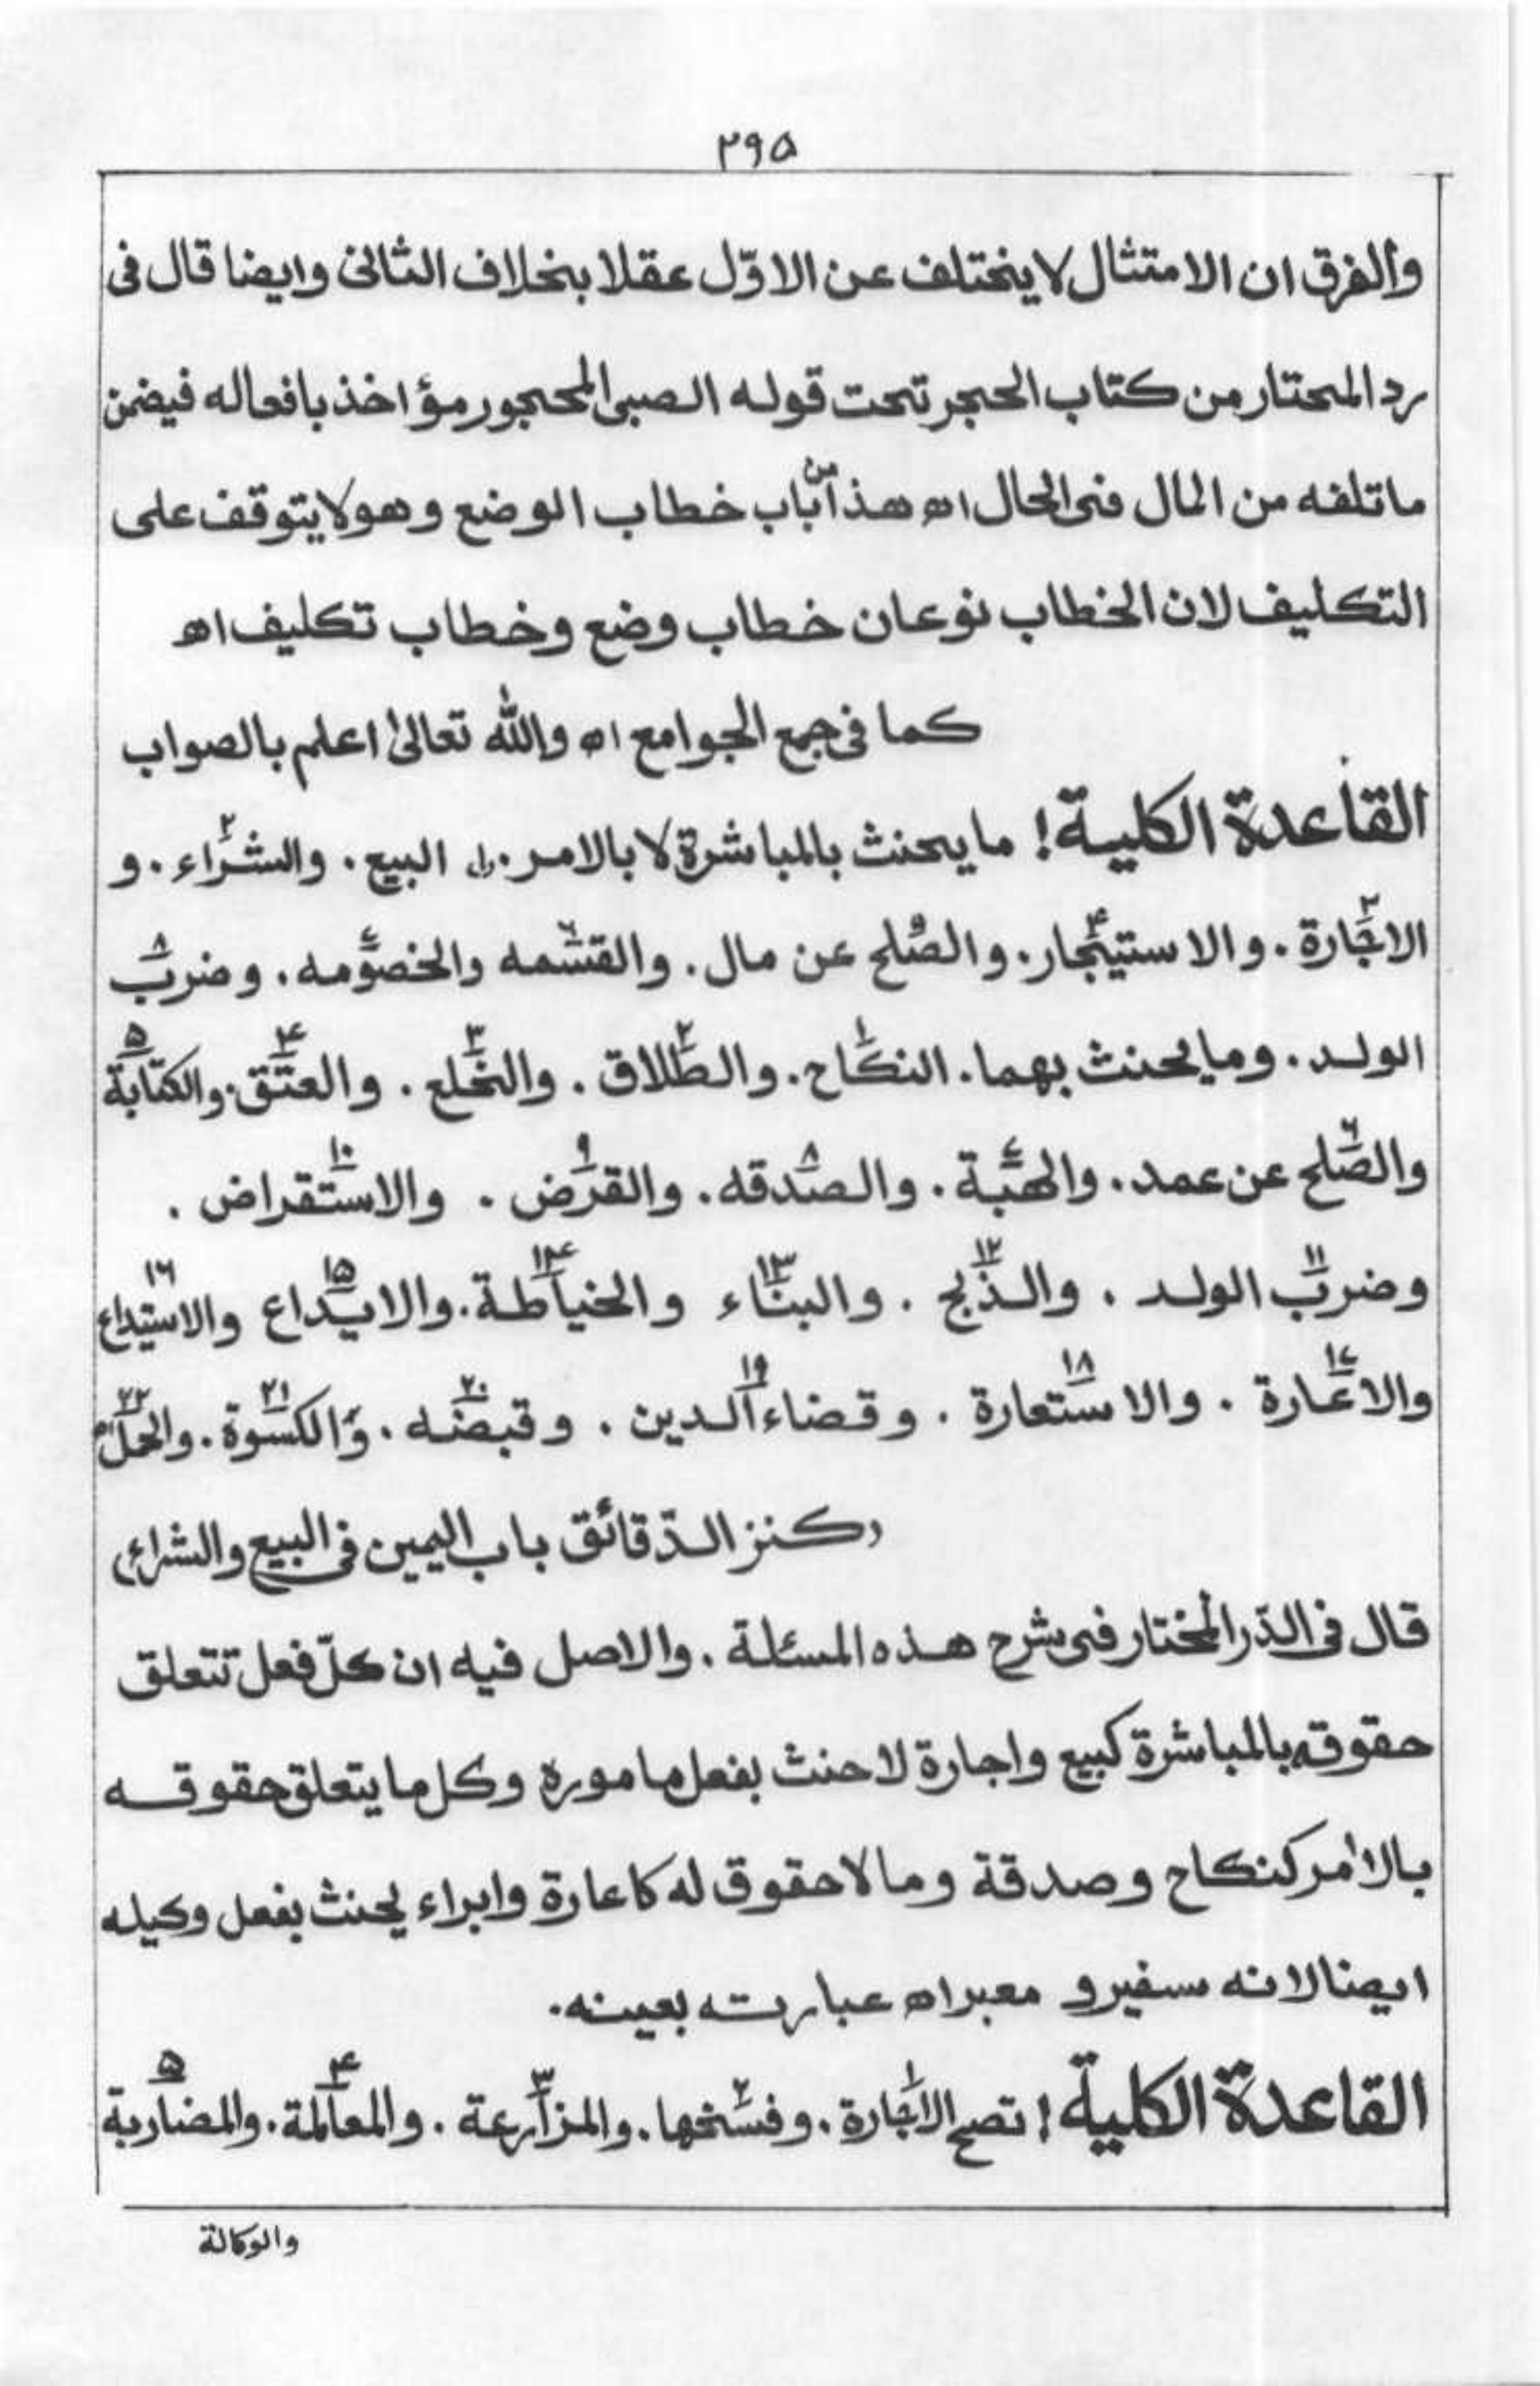 ۲۹۵
والفرق ان الامتثال لا يختلف عن الاوّل عقلا بخلاف الثانى وايضا قال فى
رد المحتار من كتاب الحجر تحت قوله الصبى المحجور مؤاخذ بافعاله فيضمن
ماتلفه من المال فى الحال اھ هذا من باب خطاب الوضع وهو لا يتوقف على
التكليف لان الخطاب نوعان خطاب وضع وخطاب تكليف اھ
كما فى جمع الجوامع اھ والله تعالىٰ اعلم بالصواب
القاعدة الكلية! ما يحنث بالمباشرة لا بالامر. ۱ البيع. والشراء ۲. و
الاجارة ۳. والاستيئجار ۴. والصلح ۵ عن مال. والقسمه ۶ والخصومه ۷. وضرب ۸
الولد. وما يحنث بهما. النكاح ۱. والطلاق ۲. والخلع ۳. والعتق ۴. والكتابة ۵
والصلح ۶ عن عمد. والهبة ۷. والصدقه ۸. والقرض ۹. والاستقراض ۱۰.
وضرب ۱۱ الولد. والذبح ۱۲. والبناء ۱۳ والخياطة ۱۴. والايداع ۱۵ والاستيداع ۱۶
والاعارة ۱۷. والاستعارة ۱۸. وقضاء الدين ۱۹. وقبضه ۲۰. والكسوة ۲۱. والحمل ۲۲
(كنز الدّقائق باب اليمين فى البيع والشراء)
قال فى الدّر المختار فى شرح هذه المسئلة. والاصل فيه ان كلّ فعل تتعلق
حقوقه بالمباشرة كبيع واجارة لا حنث بفعل ماموره وكل ما يتعلق حقوقه
بالامر كنكاح وصدقة وما لا حقوق له كاعارة وابراء يحنث بفعل وكيله
ايضا لانه سفير و معبر اھ عبارته بعينه.
القاعدة الكلية! تصح الاجارة ۱. وفسخها ۲. والمزارعة ۳. والمعاملة ۴. والمضاربة ۵
والوكالة